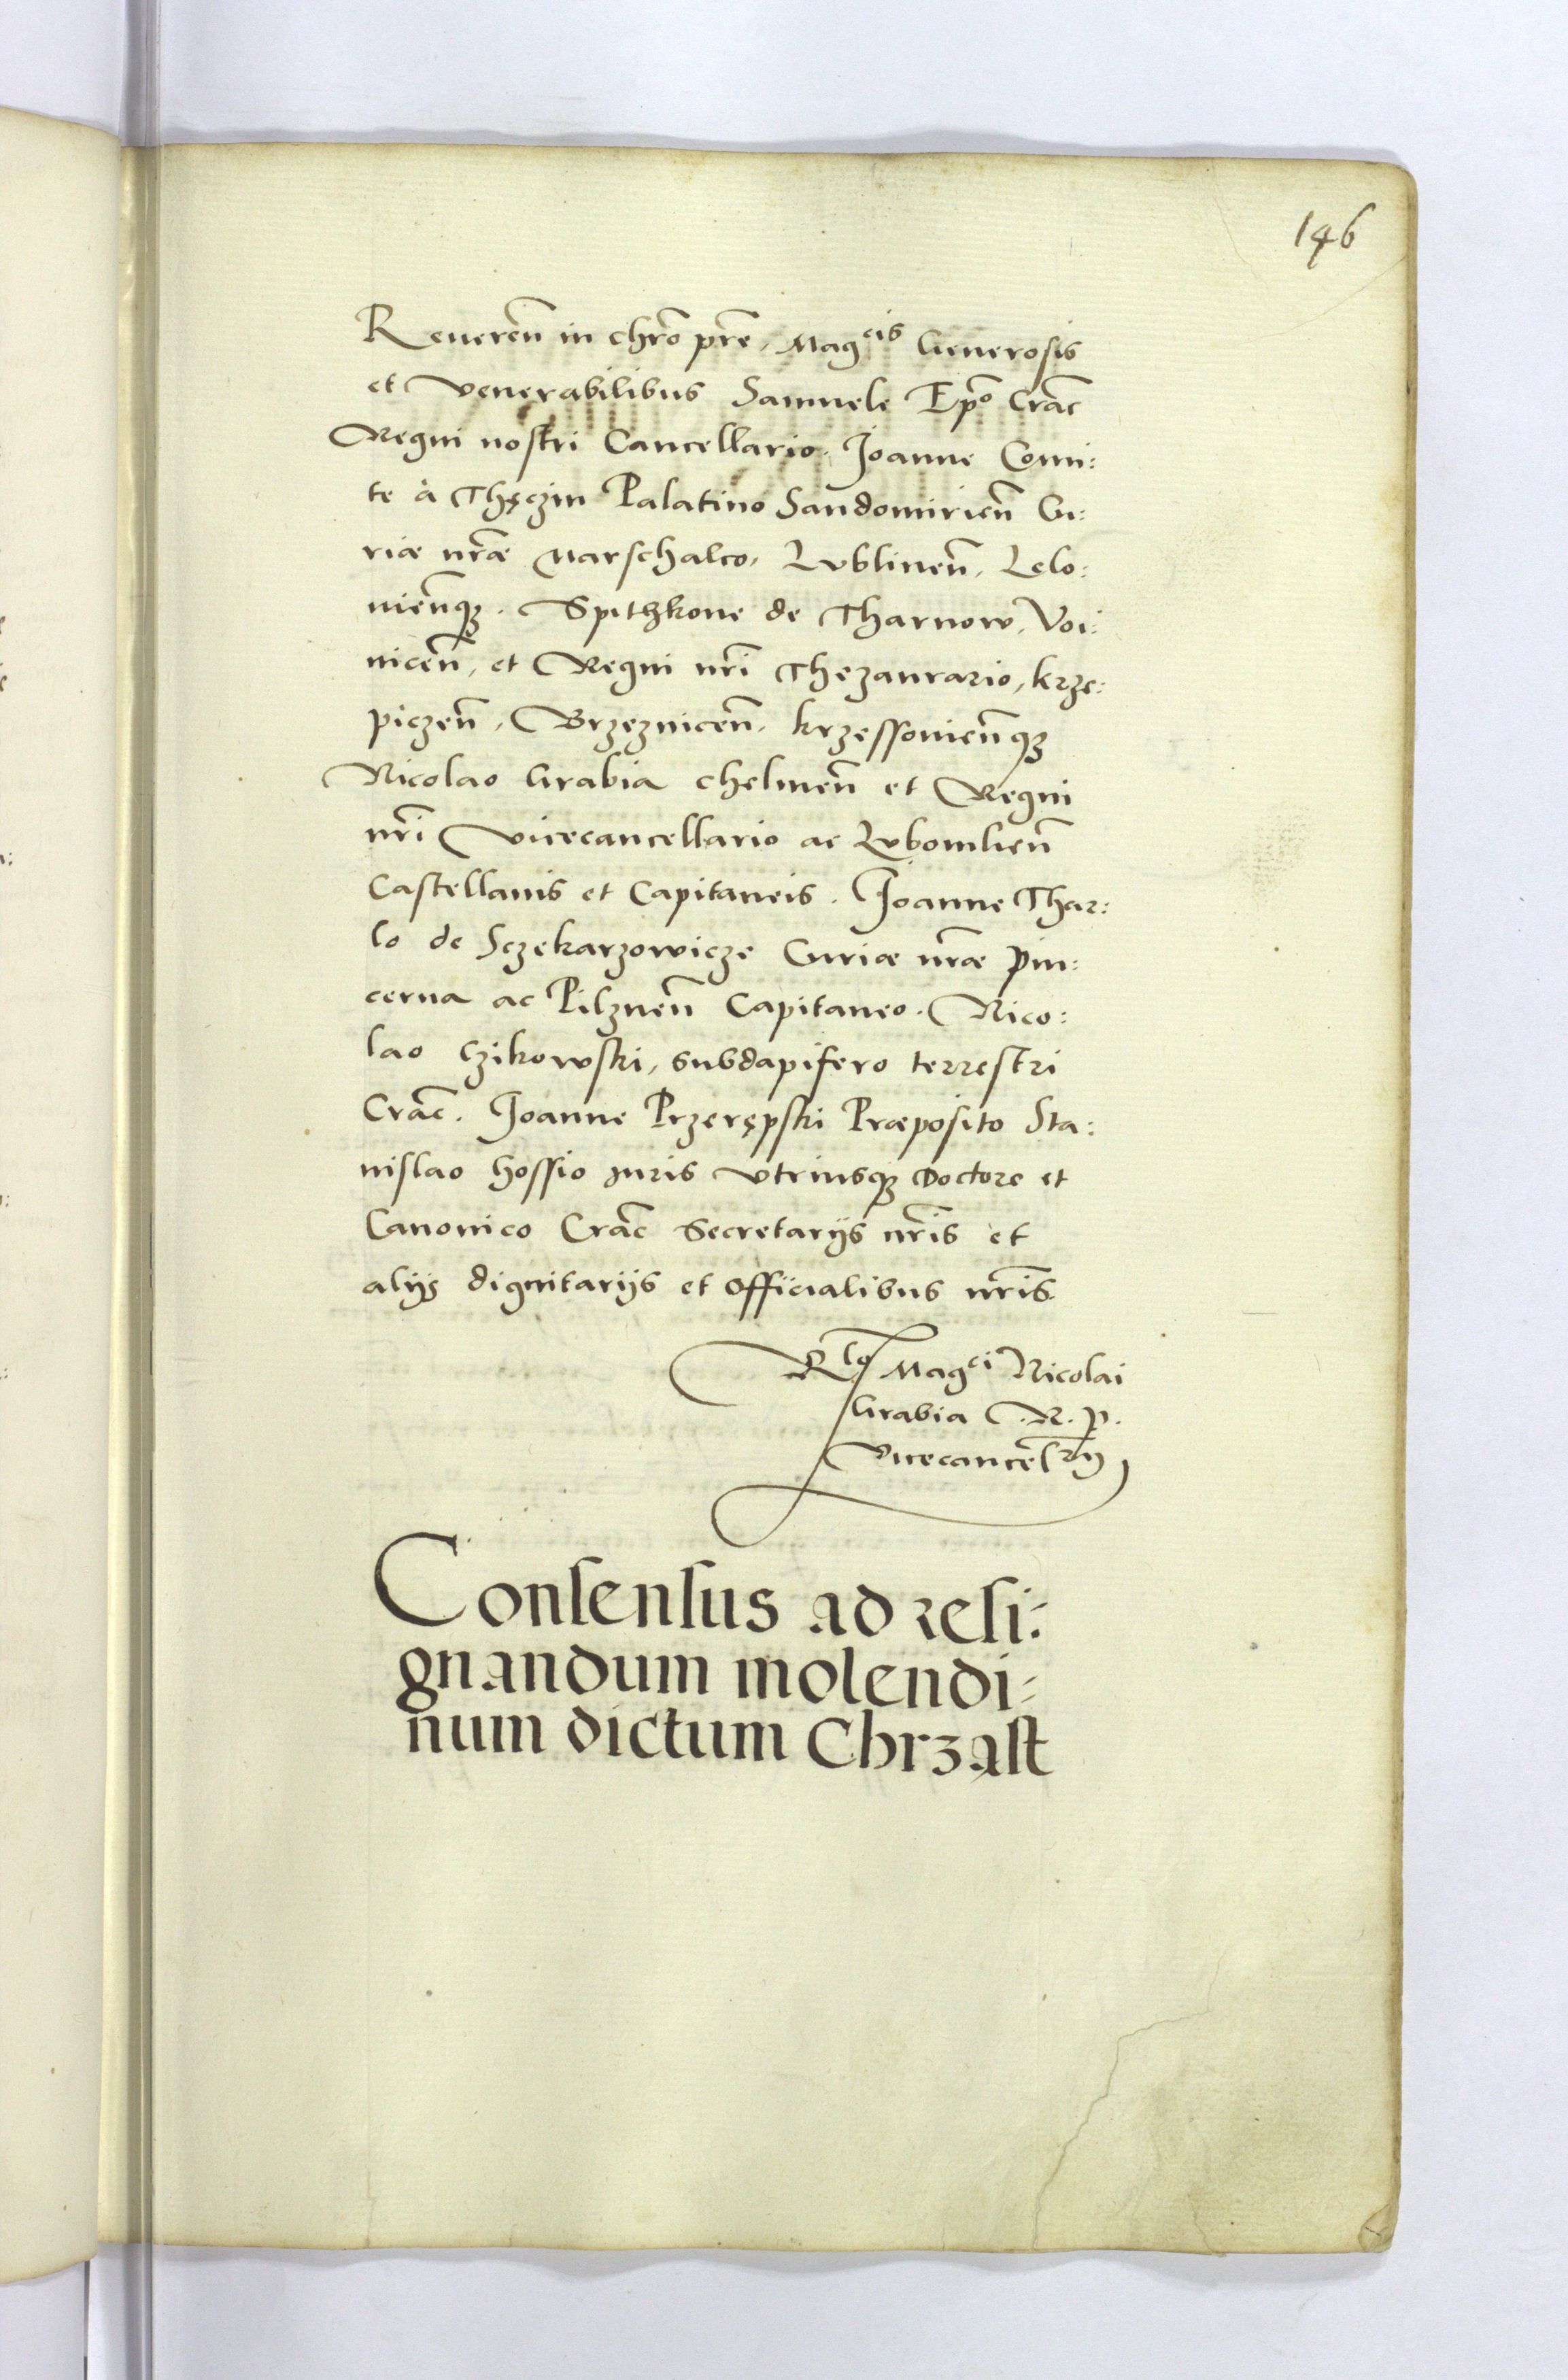 146
Reueren̄ in chr̄o pr̄e, Mag^cis Generosis
et Venerabilibus Samuele Ep̄o Crac̄
Regni nostri Cancellario. Joanne Comi:
te à Thęczin Palatino Sandomirien̄ Cu:
riæ nr̄æ Marschalco, Lublinen̄, Lelo:
uien̄qȝ. Spithkone de Tharnow, Voi:
nicen̄, et Regni nr̄i Thezaurario, krze:
piczen̄, Brzeznicen̄, krzessouien̄qȝ
Nicolao Grabia chelmen̄ et Regni
nr̄i Vicecancellario ac Lubomlien̄
Castellanis et Capitaneis. Joanne Thar:
lo de Sczekarzowicze Curiæ nr̄æ pin:
cerna ac Pilznen̄ Capitaneo. Nico:
lao Czikowski, subdapifero terrestri
Crac̄. Joanne Przerępski Præposito Sta:
nislao hossio Juris Vtriusqȝ Doctore et
Canonico Crac̄ Secretarijs nr̄is et
alijs dignitarijs et officialibus nr̄is.
R^lo Mag^ci Nicolai
Grabia .R.P.
Vicecancel̄^rij
Consensus ad resi:
gnandum molendi:
num dictum Chrząst